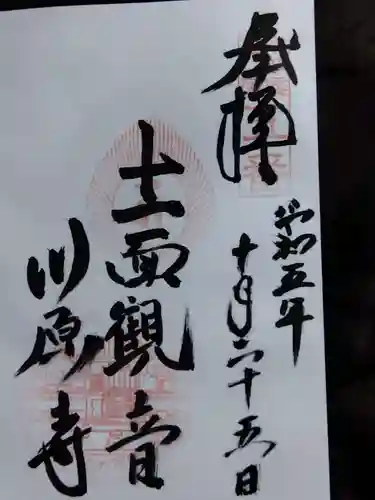 奉拝
令和五年
十月二十五日
十一面觀音
川原寺